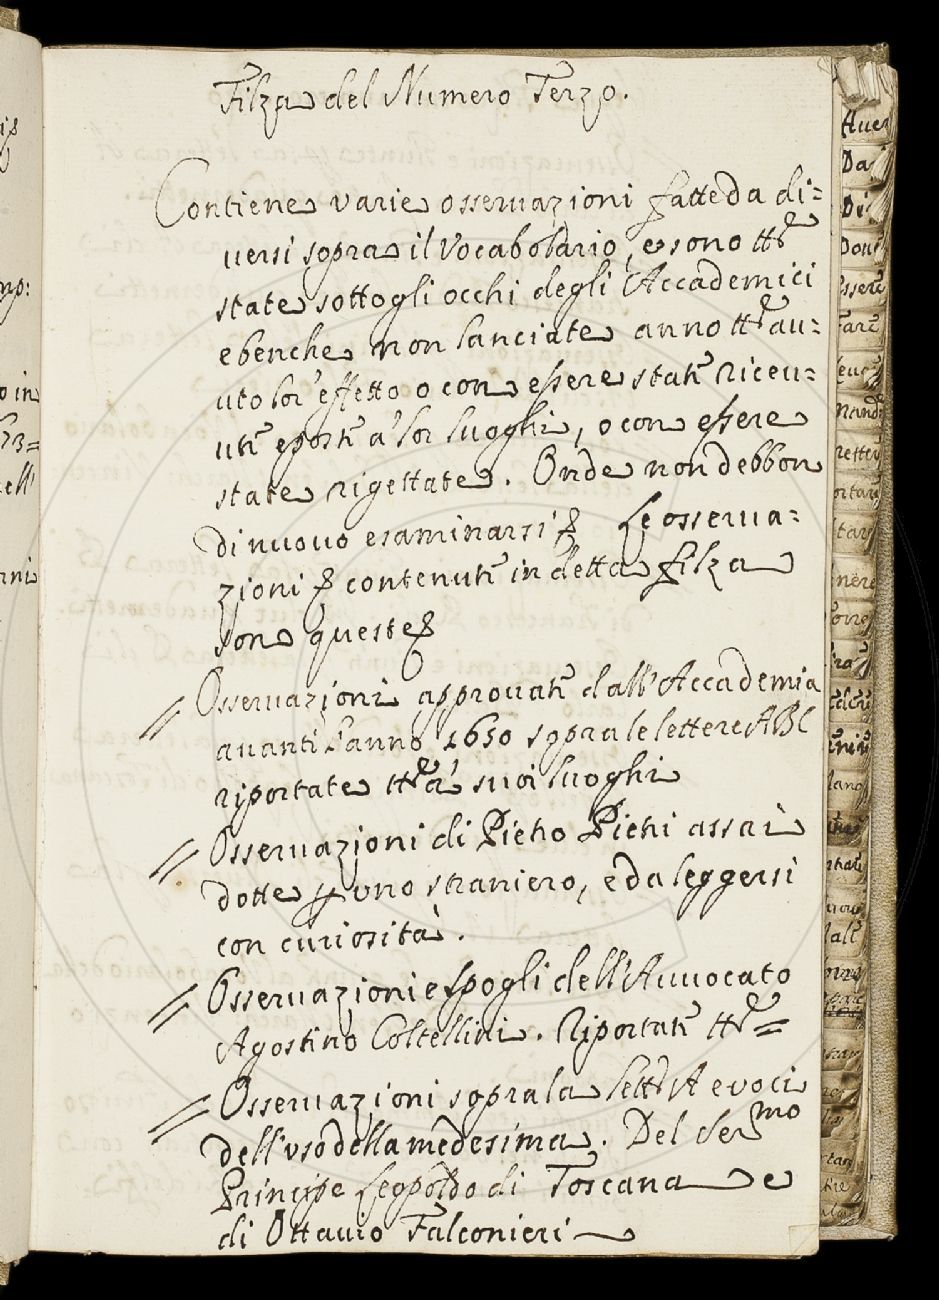 Filza del Numero Terzo.
Contiene varie osseruazioni fatte da di=
uersi sopra il Vocabolario, e sono tt.e
state sotto gli occhi degli Accademici
e benche non lanciate anno tt.e au=
uto lor' effetto o con essere state riceu=
ute e poste a' lor luoghi, o con essere
state rigettate. Onde non debbon
di nuouo esaminarsi Le osserua=
zioni contenute in detta filza
son queste
// Osseruazioni approuate dall'Accademia
auanti l'anno 1650 sopra le lettere ABC
riportate tt.e a' suoi luoghi
// Osseruazioni di Pietro Pieri assai
dotte p uno straniero, e da leggersi
con curiosità.
// Osseruazioni e spogli dell'Auuocato
Agostino Coltellini. Riportate tt.e =
// Osseruazioni sopra la lett.a A e voci
dell'uso della medesima. Del Ser.mo
Principe Leopoldo di Toscana e
di Ottauio Falconieri